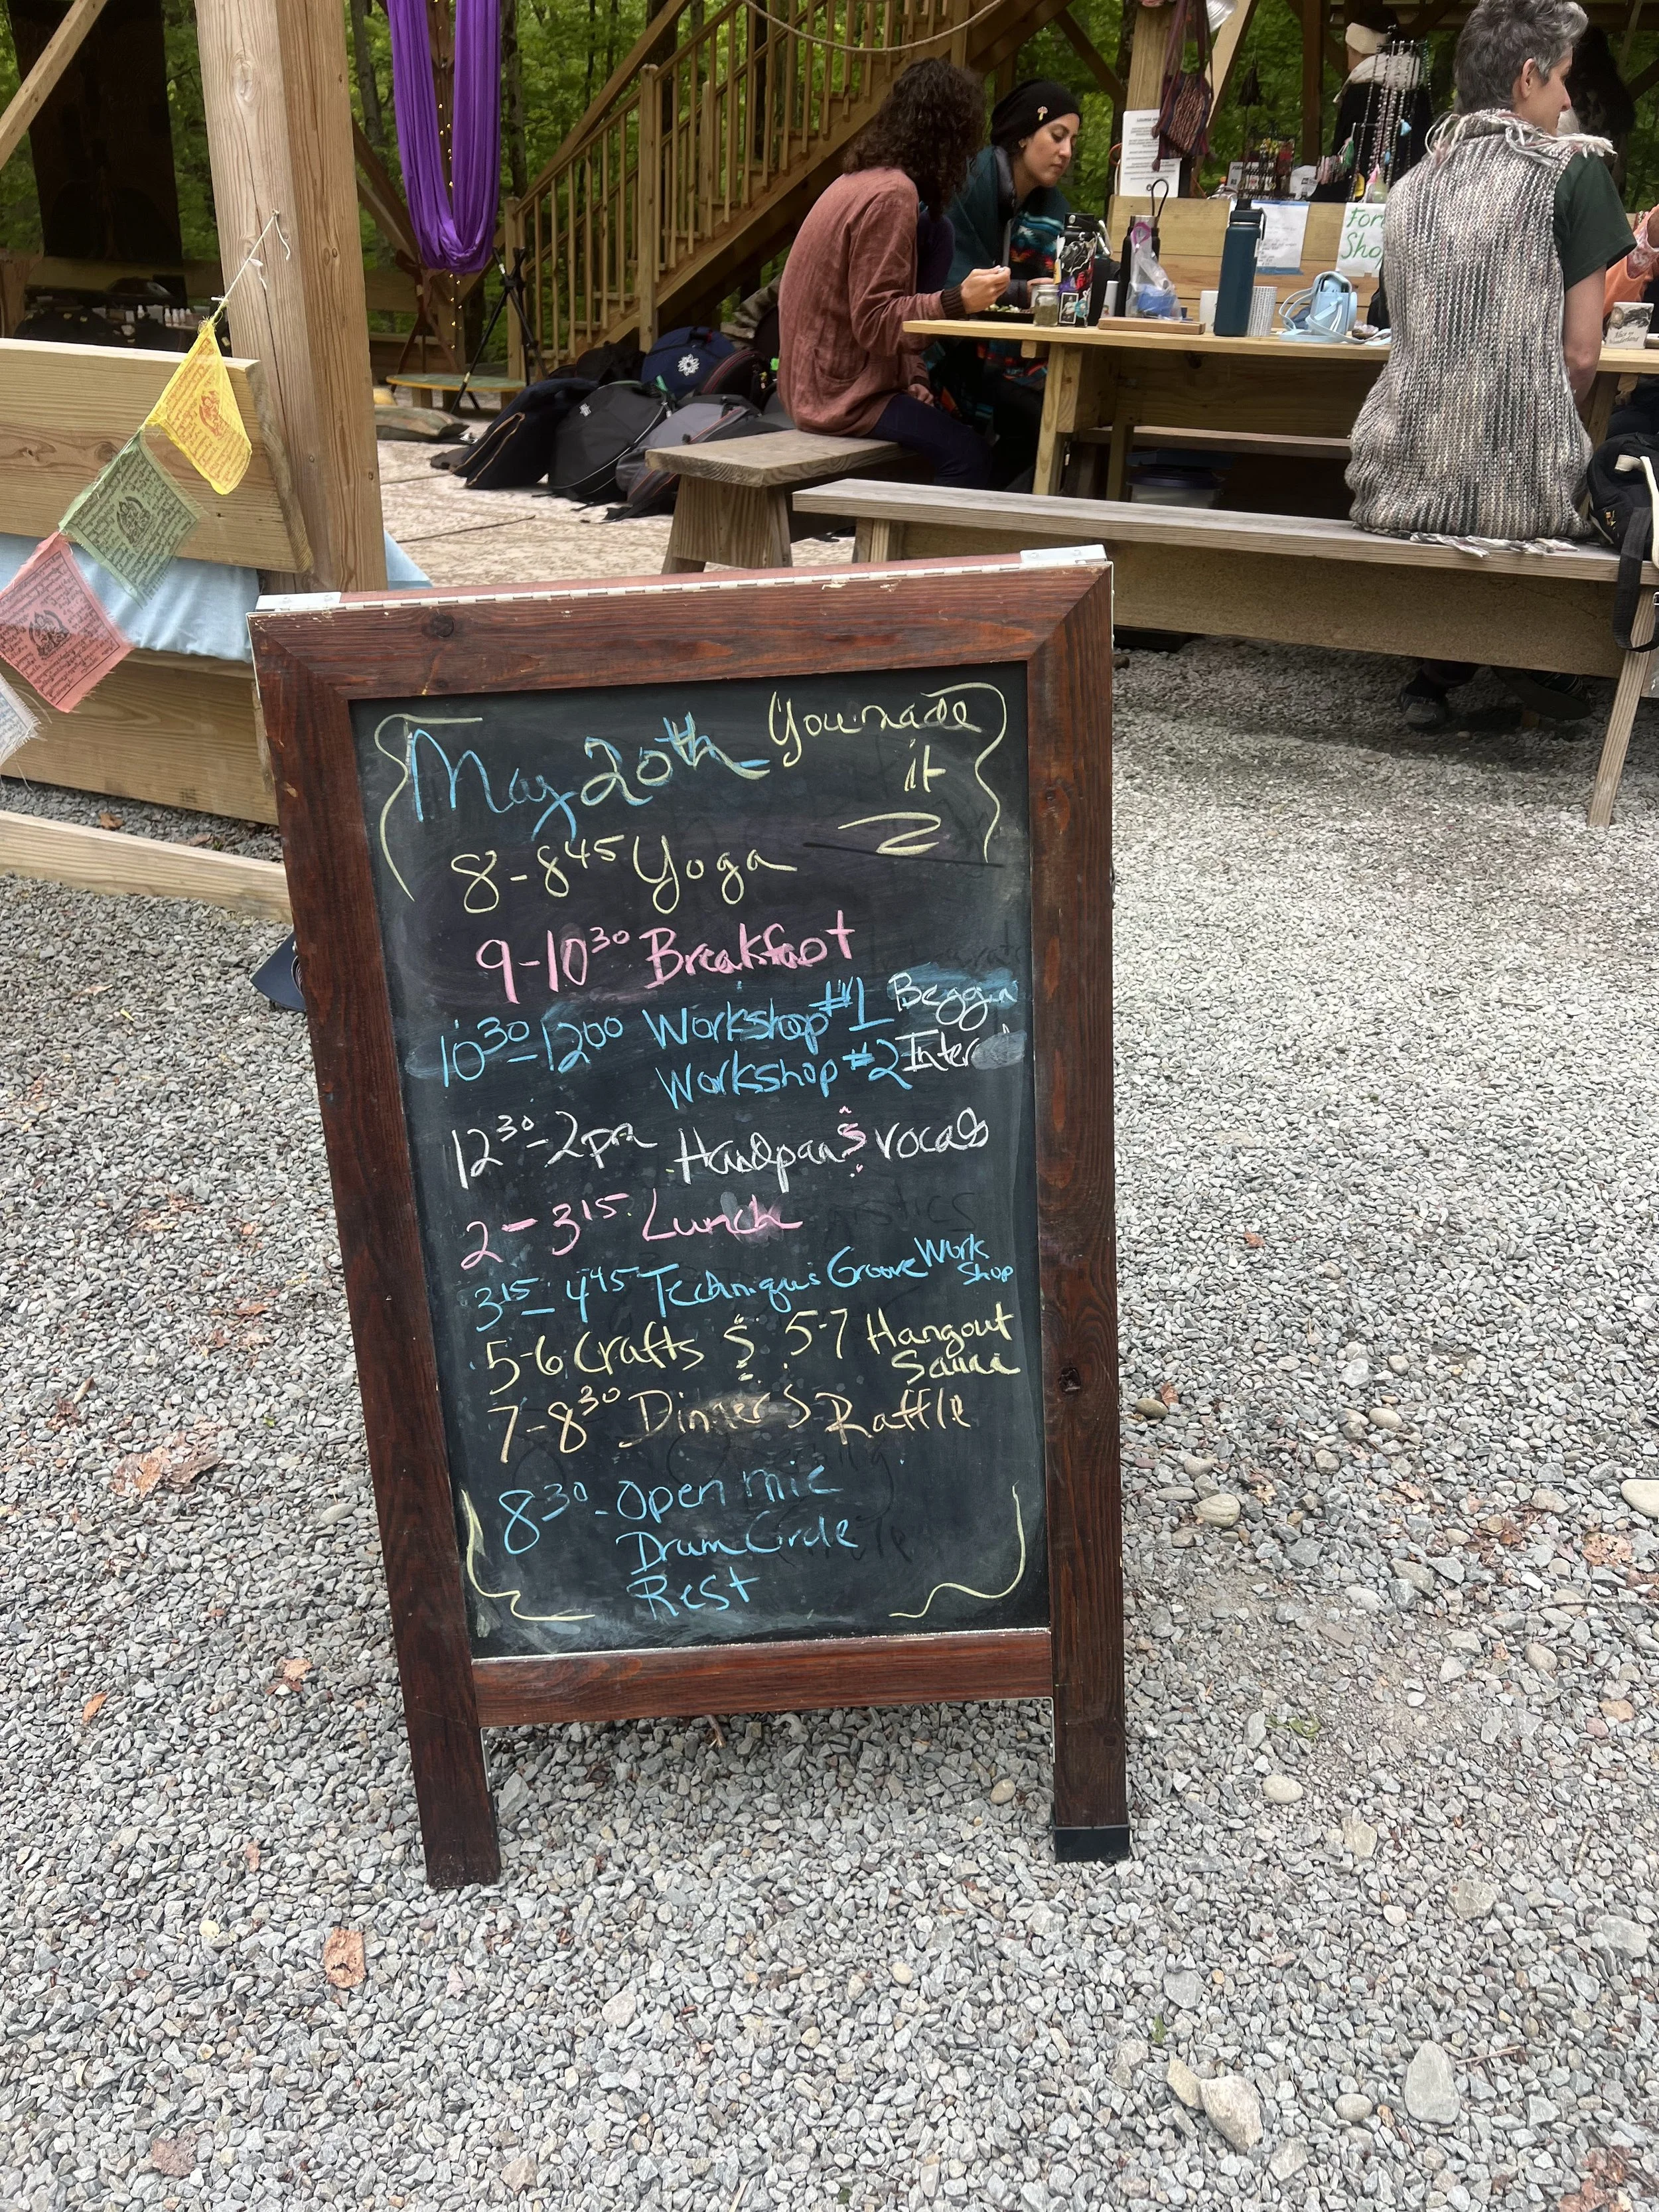 May 20th You made
it
8-8 45 Yoga
9-10 30 Breakfast
10 30-12 00 Workshop #1 Beggn
Workshop #2 Inter
12 30-2pm Handpan & vocals
2-3 15 Lunch
3 15-4 45 Technique Groove Work
Shop
5-6 Crafts & 5-7 Hangout
Sauna
7-8 30 Dinner & Raffle
8 30-Open mic
Drum Circle
Rest
For
Sho